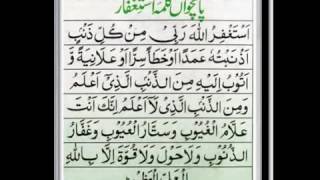 پانچواں کلمہ استغفار
اَسْتَغْفِرُ اللهَ رَبِّىْ مِنْ كُلِّ ذَنْۢبٍ
اَذْنَبْتُهٗ عَمَدًا اَوْ خَطَأً سِرًّا اَوْ عَلَانِيَةً وَّ
اَتُوْبُ اِلَيْهِ مِنَ الذَّنْۢبِ الَّذِىْٓ اَعْلَمُ
وَمِنَ الذَّنْۢبِ الَّذِىْ لَآ اَعْلَمُ اِنَّكَ اَنْتَ
عَلَّامُ الْغُيُوْبِ وَسَتَّارُ الْعُيُوْبِ وَغَفَّارُ
الذُّنُوْبِ وَلَا حَوْلَ وَلَا قُوَّةَ اِلَّا بِاللهِ
الْعَلِىِّ الْعَظِيْمِ